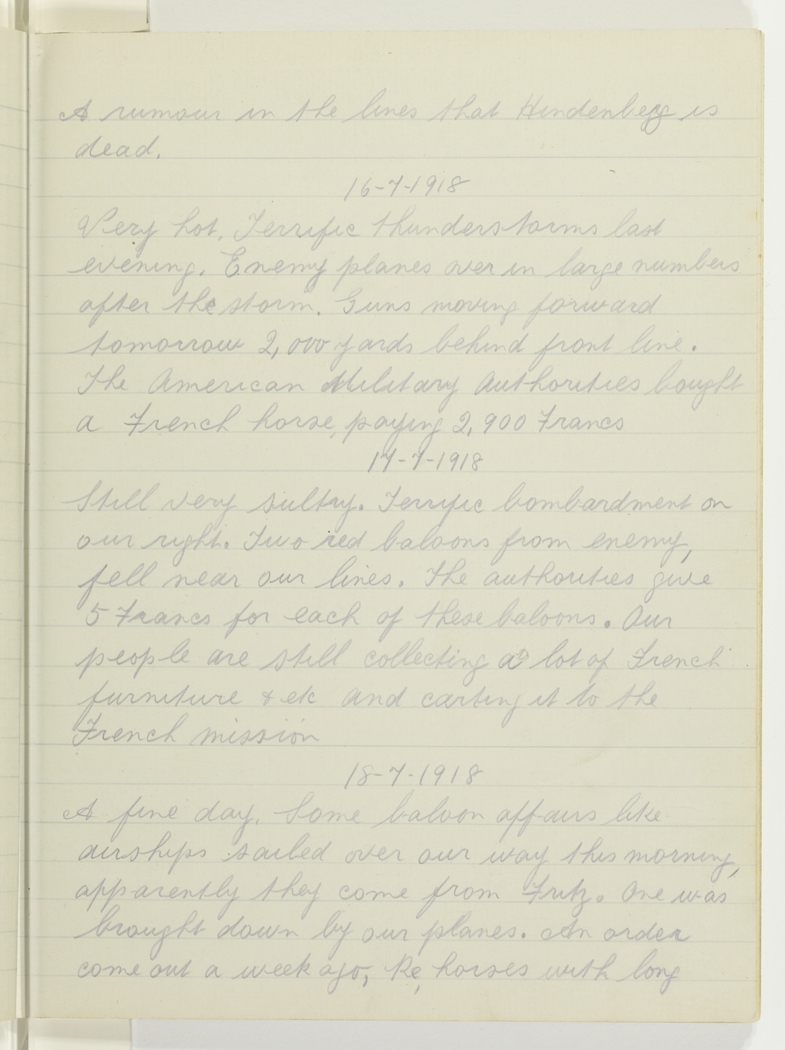 A rumour in the lines that Hindenbegg is
dead.
16-7-1918
Very hot. Terrific thunderstorms last
evening. Enemy planes over in large numbers
after the storm. Guns moving forward
tomorrow 2,000 yards behind front line.
The American Military Authorities bought
a French horse, paying 2,900 Francs
17-7-1918
Still very sultry. Terrific bombardment on
our right. Two red baloons from enemy,
fell near our lines. The authorities give
5 Francs for each of these baloons. Our
people are still collecting a lot of French
furniture & etc and carting it to the
French mission
18-7-1918
A fine day. Some baloon affairs like
airships sailed over our way this morning,
apparently they come from Fritz. One was
brought down by our planes. An order
come out a week ago, Re, horses with long